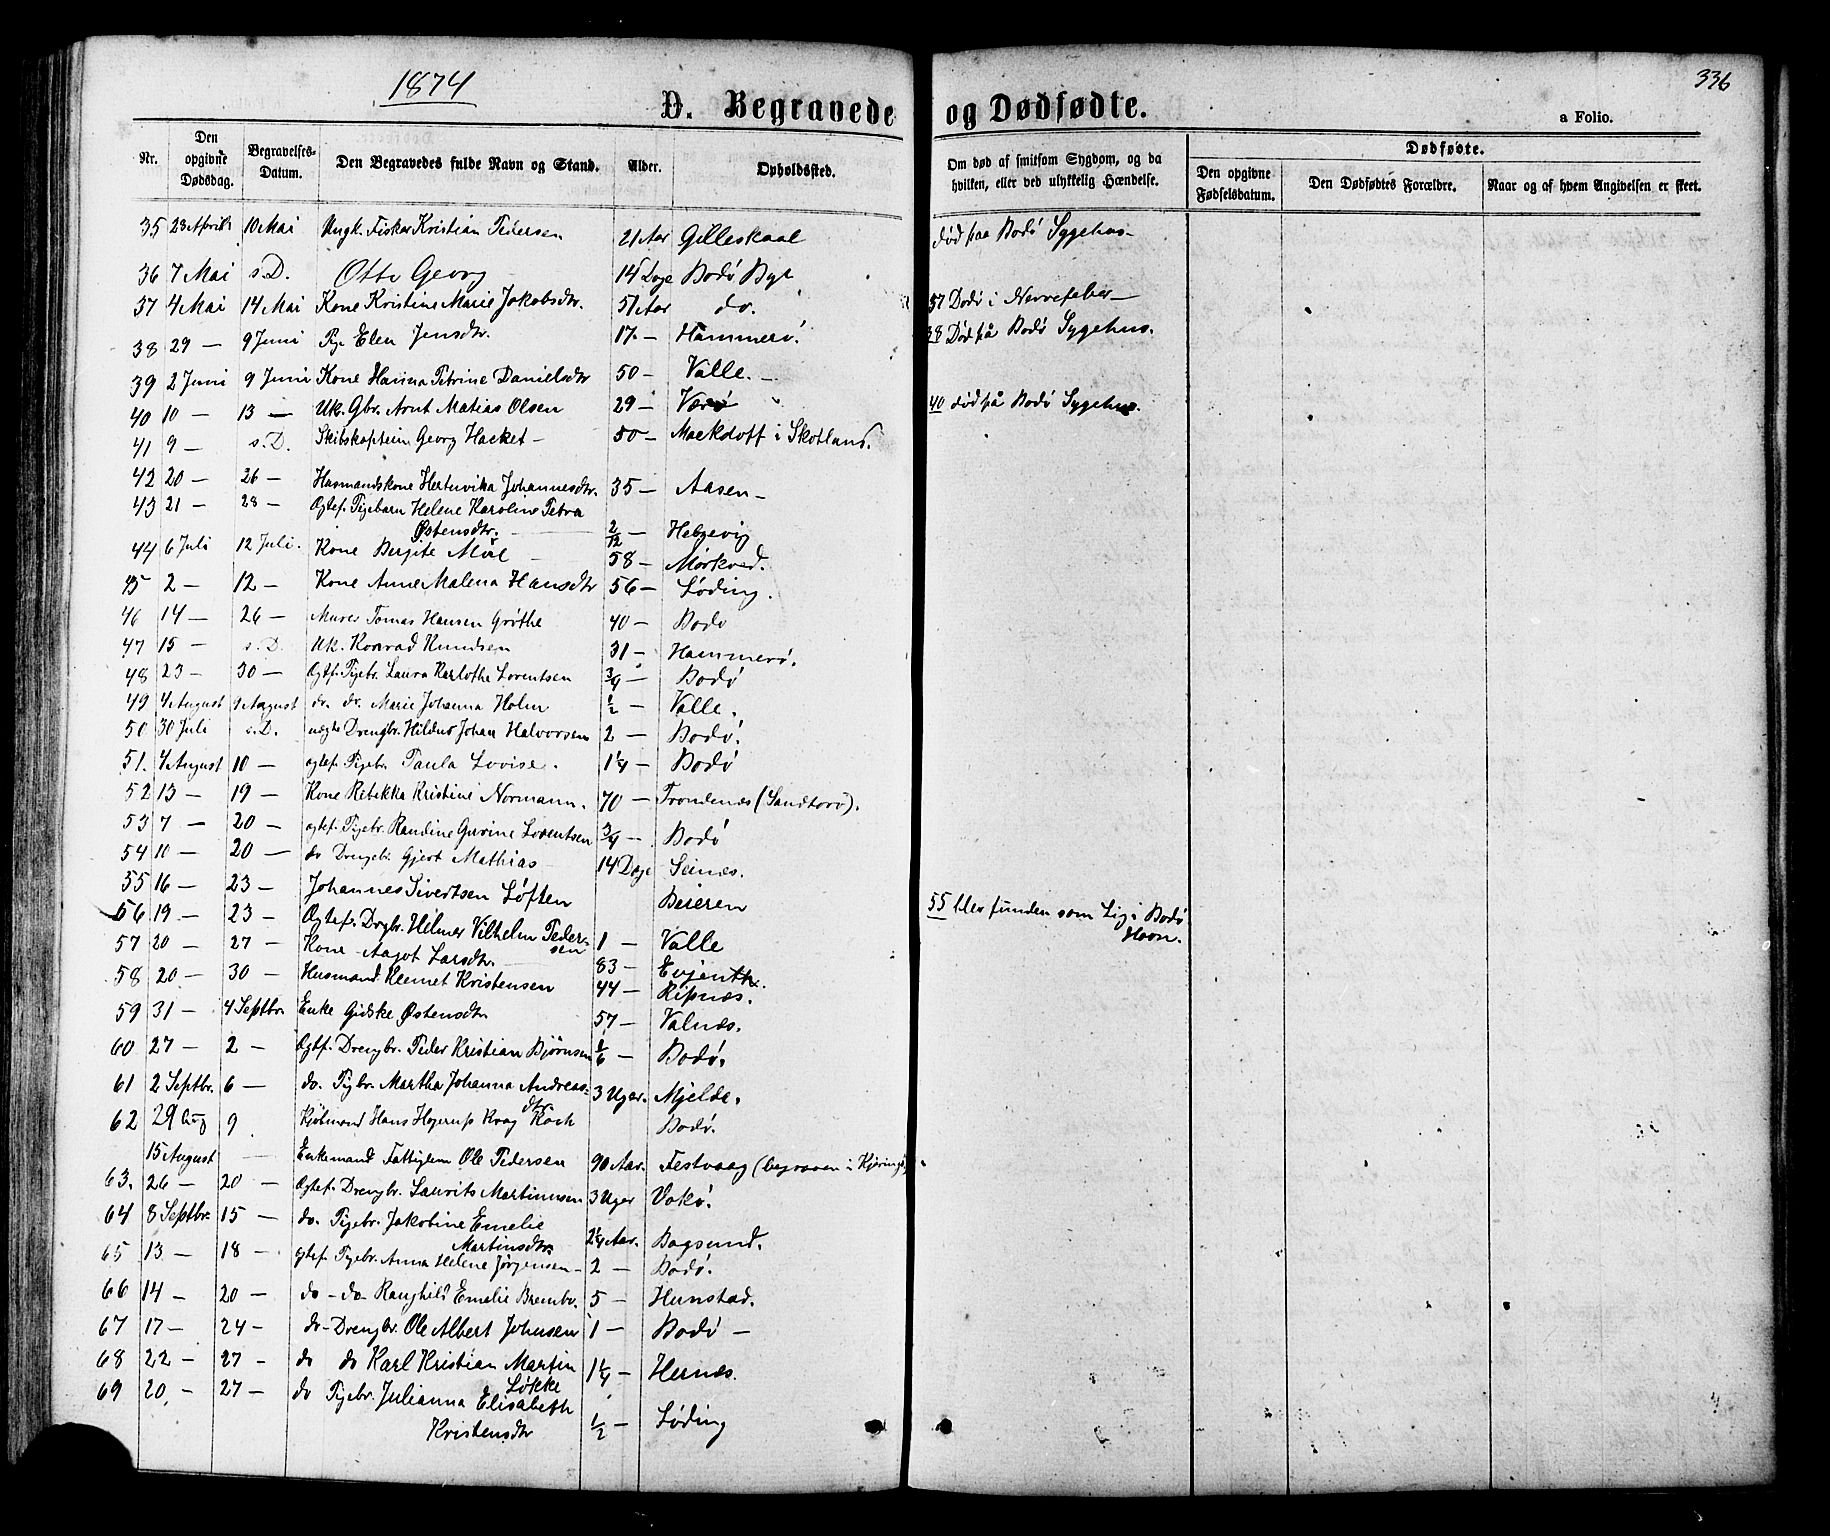 1874
336
D. Begravede og Dødfødte.
a Folio.
Nr. Den opgivne Dødsdag. Begravelses-Datum. Den Begravedes fulde Navn og Stand. Alder. Opholdssted. Om død af smitsom Sygdom, og da hvilken, eller ved ulykkelig Hændelse. Dødfødte. Den opgivne Fødselsdatum. Den Dødfødtes Forældre. Naar og af hvem Angivelsen er skeet.
35 23 April 10 Mai Ungk. Fisker Kristian Pedersen 21 Aar Gilleskaal død paa Bodø Sygehus
36 7 Mai s.D. Otto Georg 14 Dage Bodø By
37 4 Mai 14 Mai Kone Kristine Marie Jakobsdtr. 51 Aar do. 37 Døde i Nervefeber
38 29 — 9 Juni Pige Elen Jensdtr. 17 — Hammerø. 38 Død på Bodø Sygehus.
39 2 Juni 9 Juni Kone Hanna Petrine Danielsdtr 50 — Valle. —
40 10 — 13 — Uk. Gbr. Arnt Matias Olsen 29 — Værø 40 død på Bodø Sygehus.
41 9 — s.D. Skibskaptein Georg Hacket — 50 — Mackdoff i Skotland.
42 20 — 26 — Husmandskone Johannesdtr. 35 — Aasen —
43 21 — 28 — Ægtef. Pigebarn Helene Karoline Petra
Østensdtr. 2/12 — Hebgevig
44 6 Juli 12 Juli. Kone Bergite Moe — 58 — Mørkved.
45 2 — 12 — Kone Anne Malena Hansdtr 56 — Løding.
46 14 — 26 — Murer Tomas Hansen Grøthe 40 — Bodø
47 15 — s.D. Uk. Konrad Knudsen 31 — Hammerø.
48 23 — 30 — Ægtf. Pigebr. Laura Karlotha Lorentsen 3/4 — Bodø
49 4 August 9 August do. do. Marie Johanna Holm 1/2 — Valle.
50 30 Juli s.D. uægte Drengbr. Johan Halvorsen 2 — Bodø.
51. 4 August 10 — ægtef. Pigebr. Paula Lovise. 1 1/4 — Bodø
52 13 — 19 — Kone Rebekka Kristine Normann. 70 — Trondenæs (Sandtorv).
53 7 — 20 — ægtef. Pigebr. Randine Lorentsen 3/4 — Bodø
54 10 — 20 — do Drengebr. Gjert Mathias 14 Dage Seinæs.
55 16 — 23 — Johannes Sivertsen Løften Beieren 55 blev funden som Lig i Bodø
Havn.
56 19 — 23 — Ægtef. Drgbr. Hilmer Vilhelm Peder-
sen 1 — Valle
57 20 — 27 — Kone Aagot Larsdtr. 83 — Evjenth.
58 20 — 30 — Husmand Klemet Kristensen 44 — Ripnæs.
59 31 — 4 Septbr Enke Gidske Østensdtr 57 — Valnæs.
60 27 — 2 — Ægtf. Drengbr. Peder Kristian Bjørnsen 1/6 — Bodø.
61 2 Septbr. 6 — do. Pigbr. Martha Johanna Andreas-
dtr 3 Uger. Mjelde.
62 29 Aug 9 Kjøbmand Hans Koch Bodø.
15 August — Enkemand Fattiglem Ole Pedersen 90 Aar. Festvaag (begraven i Kjering)
63. 26 — 20 — Ægtef. Drengbr. Laurits Martinusen 3 Uger Vokø.
64 8 Septbr. 15 — do. Pigebr. Jakobine Emelie
Martinsdtr. 2 1/4 Aar. Bogsund.
65 13 — 18 — ægtef. Pigebr. Anna Helene Jørgensen — 2 — Bodø.
66 14 — 20 — do — do — Ranghild Emelie Brembo. 5 — Hunstad.
67 17 — 24 — do — Drengbr. Ole Albert Johnsen 1 — Bodø —
68 22 — 27 — do do Karl Kristian Martin
Løkke 1 1/4 — Hernæs.
69 20 — 27 — do Pigebr. Julianna Elisabeth
Kristensdtr 1/2 — Løding